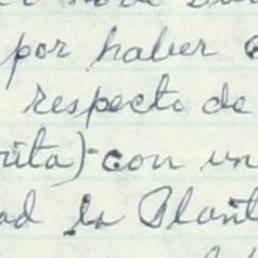 por haber
respecto de
rita) con un
ad la Plant